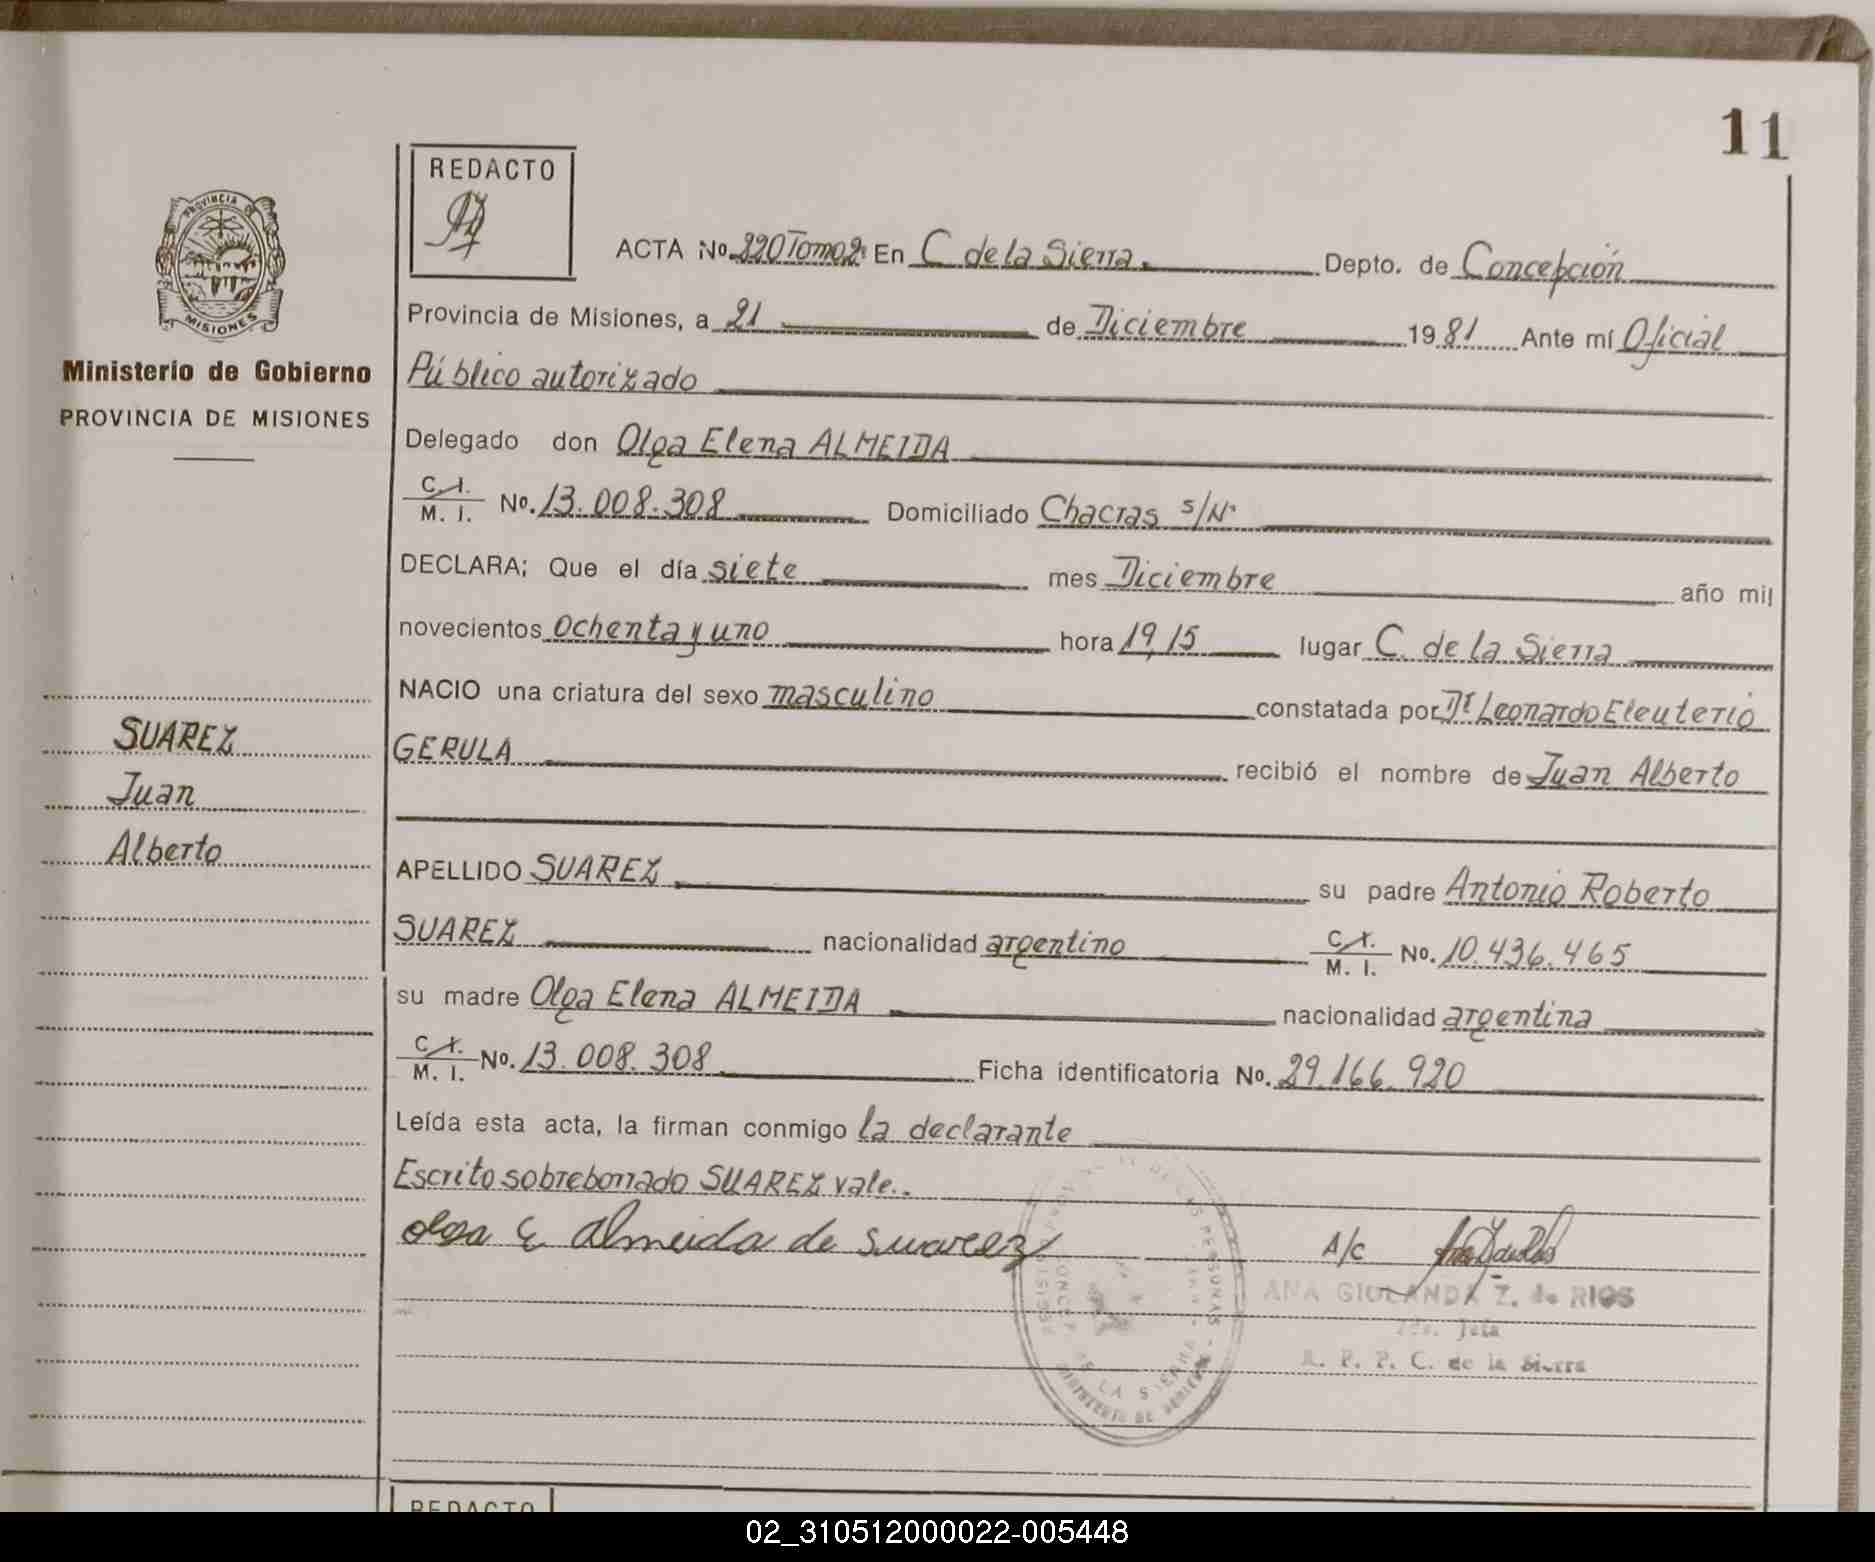 11
REDACTO
PROVINCIA DE
MISIONES
Ministerio de Gobierno
PROVINCIA DE MISIONES
ACTA No. 220 Tomo 2: En C de la Sierra. Depto. de Concepción
Provincia de Misiones, a 21 de Diciembre 1981 Ante mí Oficial
Público autorizado
Delegado don Olga Elena ALMEIDA
C. I.
M. I. No. 13.008.308 Domiciliado Chacras s/Nº
DECLARA; Que el día siete mes Diciembre año mil
novecientos ochenta y uno hora 19,15 lugar C. de la Sierra
NACIO una criatura del sexo masculino constatada por Dr Leonardo Eleuterio
GERULA recibió el nombre de Juan Alberto
SUAREZ
Juan
Alberto
APELLIDO SUAREZ su padre Antonio Roberto
SUAREZ nacionalidad argentino C. I.
M. I. No. 10.436.465
su madre Olga Elena ALMEIDA nacionalidad argentina
C. I.
M. I. No. 13.008.308 Ficha identificatoria No. 29.166.920
Leída esta acta, la firman conmigo la declarante
Escrito sobreborrado SUAREZ vale..
Olga E Almeida de Suarez A/C
ANA GIOLANDA Z. de RIOS
Jefa
R. P. P. C. de la Sierra
REDACTO
02_310512000022-005448